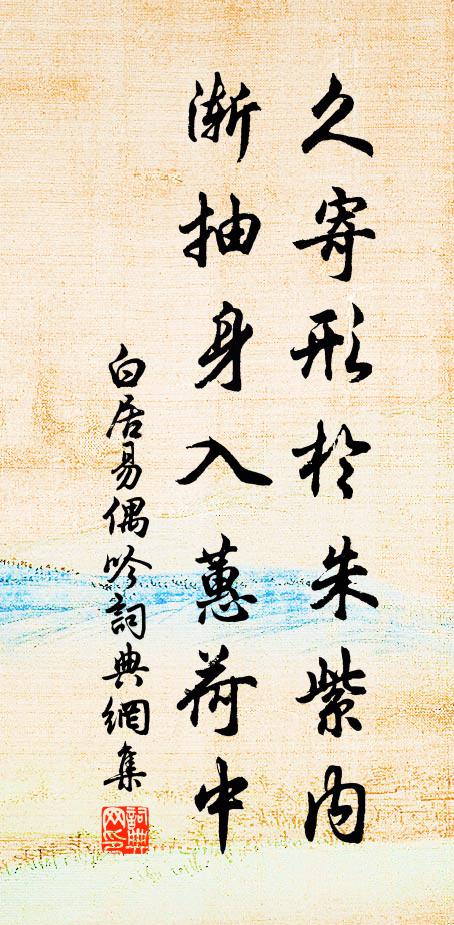 久寄形於朱紫内
渐抽身入蕙荷中
白居易偶吟詞典網集
詞典
网印